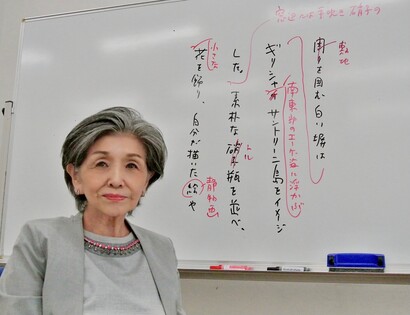 敷地
周りを囲む白い塀は
南東部のエーゲ海に浮かぶ
ギリシャ サントリーニ島をイメージ
窓辺には手吹き硝子の
した。素朴な硝子瓶を並べ、
トル
小さな
花を飾り、自分が描いた絵や
静物画